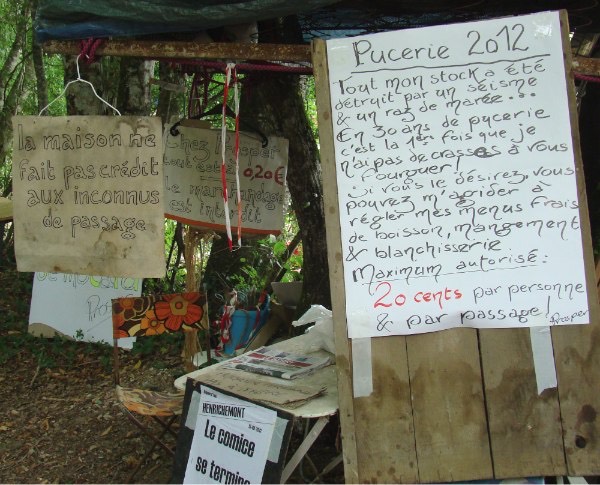 la maison ne
fait pas crédit
aux inconnus
de passage
Chez Prosper
tout est à
0,20€
le marchandage
est interdit
Pucerie 2012
Tout mon stock a été
détruit par un séisme
& un raz de marée...
En 30 ans de pucerie
c'est la 1ère fois que je
n'ai pas de crasses à vous
fourguer!
Si vous le désirez, vous
pouvez m'aider à
régler mes menus frais
de boisson, mangement
& blanchisserie
Maximum autorisé:
20 cents par personne
& par passage!
Prosper
HENRICHEMONT
Le comice
se termine